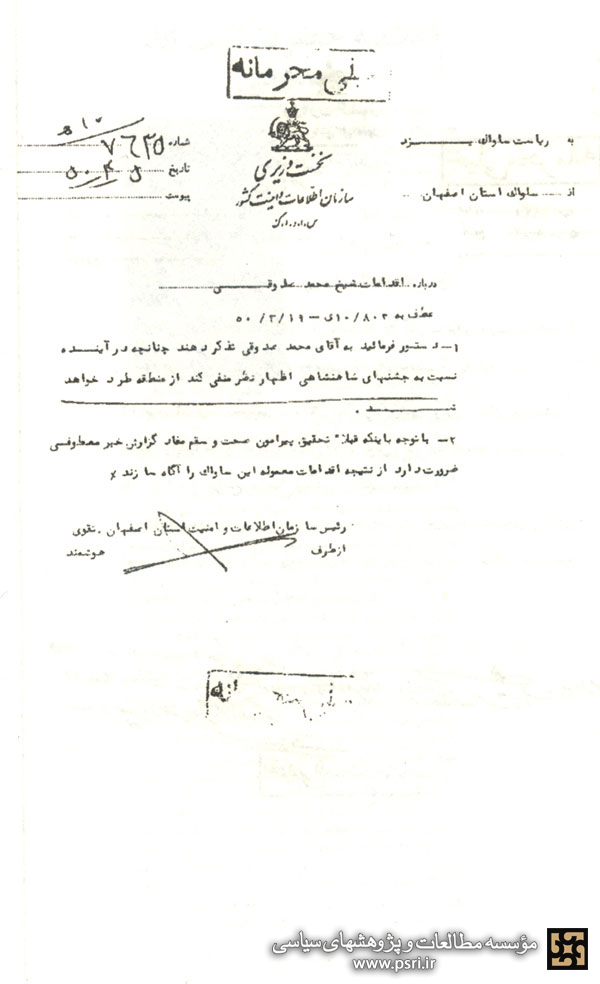 خیلی محرمانه
به ریاست ساواک یـــزد
از ساواک استان اصفهان
نخست وزیری
سازمان اطلاعات و امنیت کشور
س.ا.و.ا.ک
شماره
تاریخ
پیوست
درباره اقدامات شیخ محمد صدوقـــی
عطف به ۱۰/۸۰۲ی – ۵۰/۳/۱۹
۱- دستور فرمائید به آقای محمد صدوقی تذکر دهند چنانچه در آینـــده
نسبت به جشنهای شاهنشاهی اظهار نظر منفی کند از منطقه طرد خواهد
شـــد .
۲- با توجه باینکه قبلا" تحقیق پیرامون صحت و سقم مفاد گزارش خبر معطوفی
ضرورت دارد از نتیجه اقدامات معموله این ساواک را آگاه سازند
رئیس سازمان اطلاعات و امنیت استان اصفهان . تقوی
از طرف هوشمند
مؤسسه مطالعات و پژوهشهای سیاسی
www.psri.ir